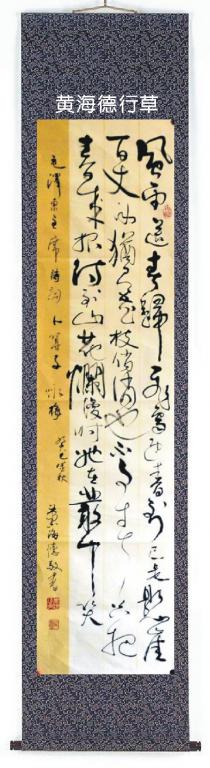 黄海德行草
風雨送春歸飛雪迎春到已是懸崖
百丈冰猶有花枝俏俏也不争春只把
春来报待到山花爛漫时她在叢中笑
毛澤东主席詩詞卜算子咏梅
癸巳秋
黄海德敬書